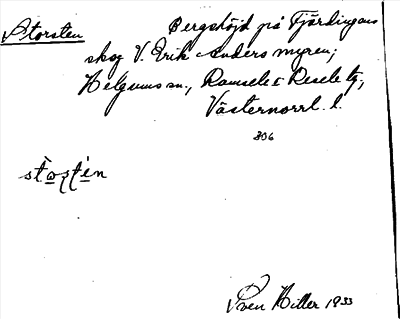 Storsten Bergshöjd på Fjärdingens
skog V. Erik Anders myren;
Helgums sn., Ramsele & Resele tg.,
Västernorrl. l.
806
stɑștén
Sven Hiller 1933